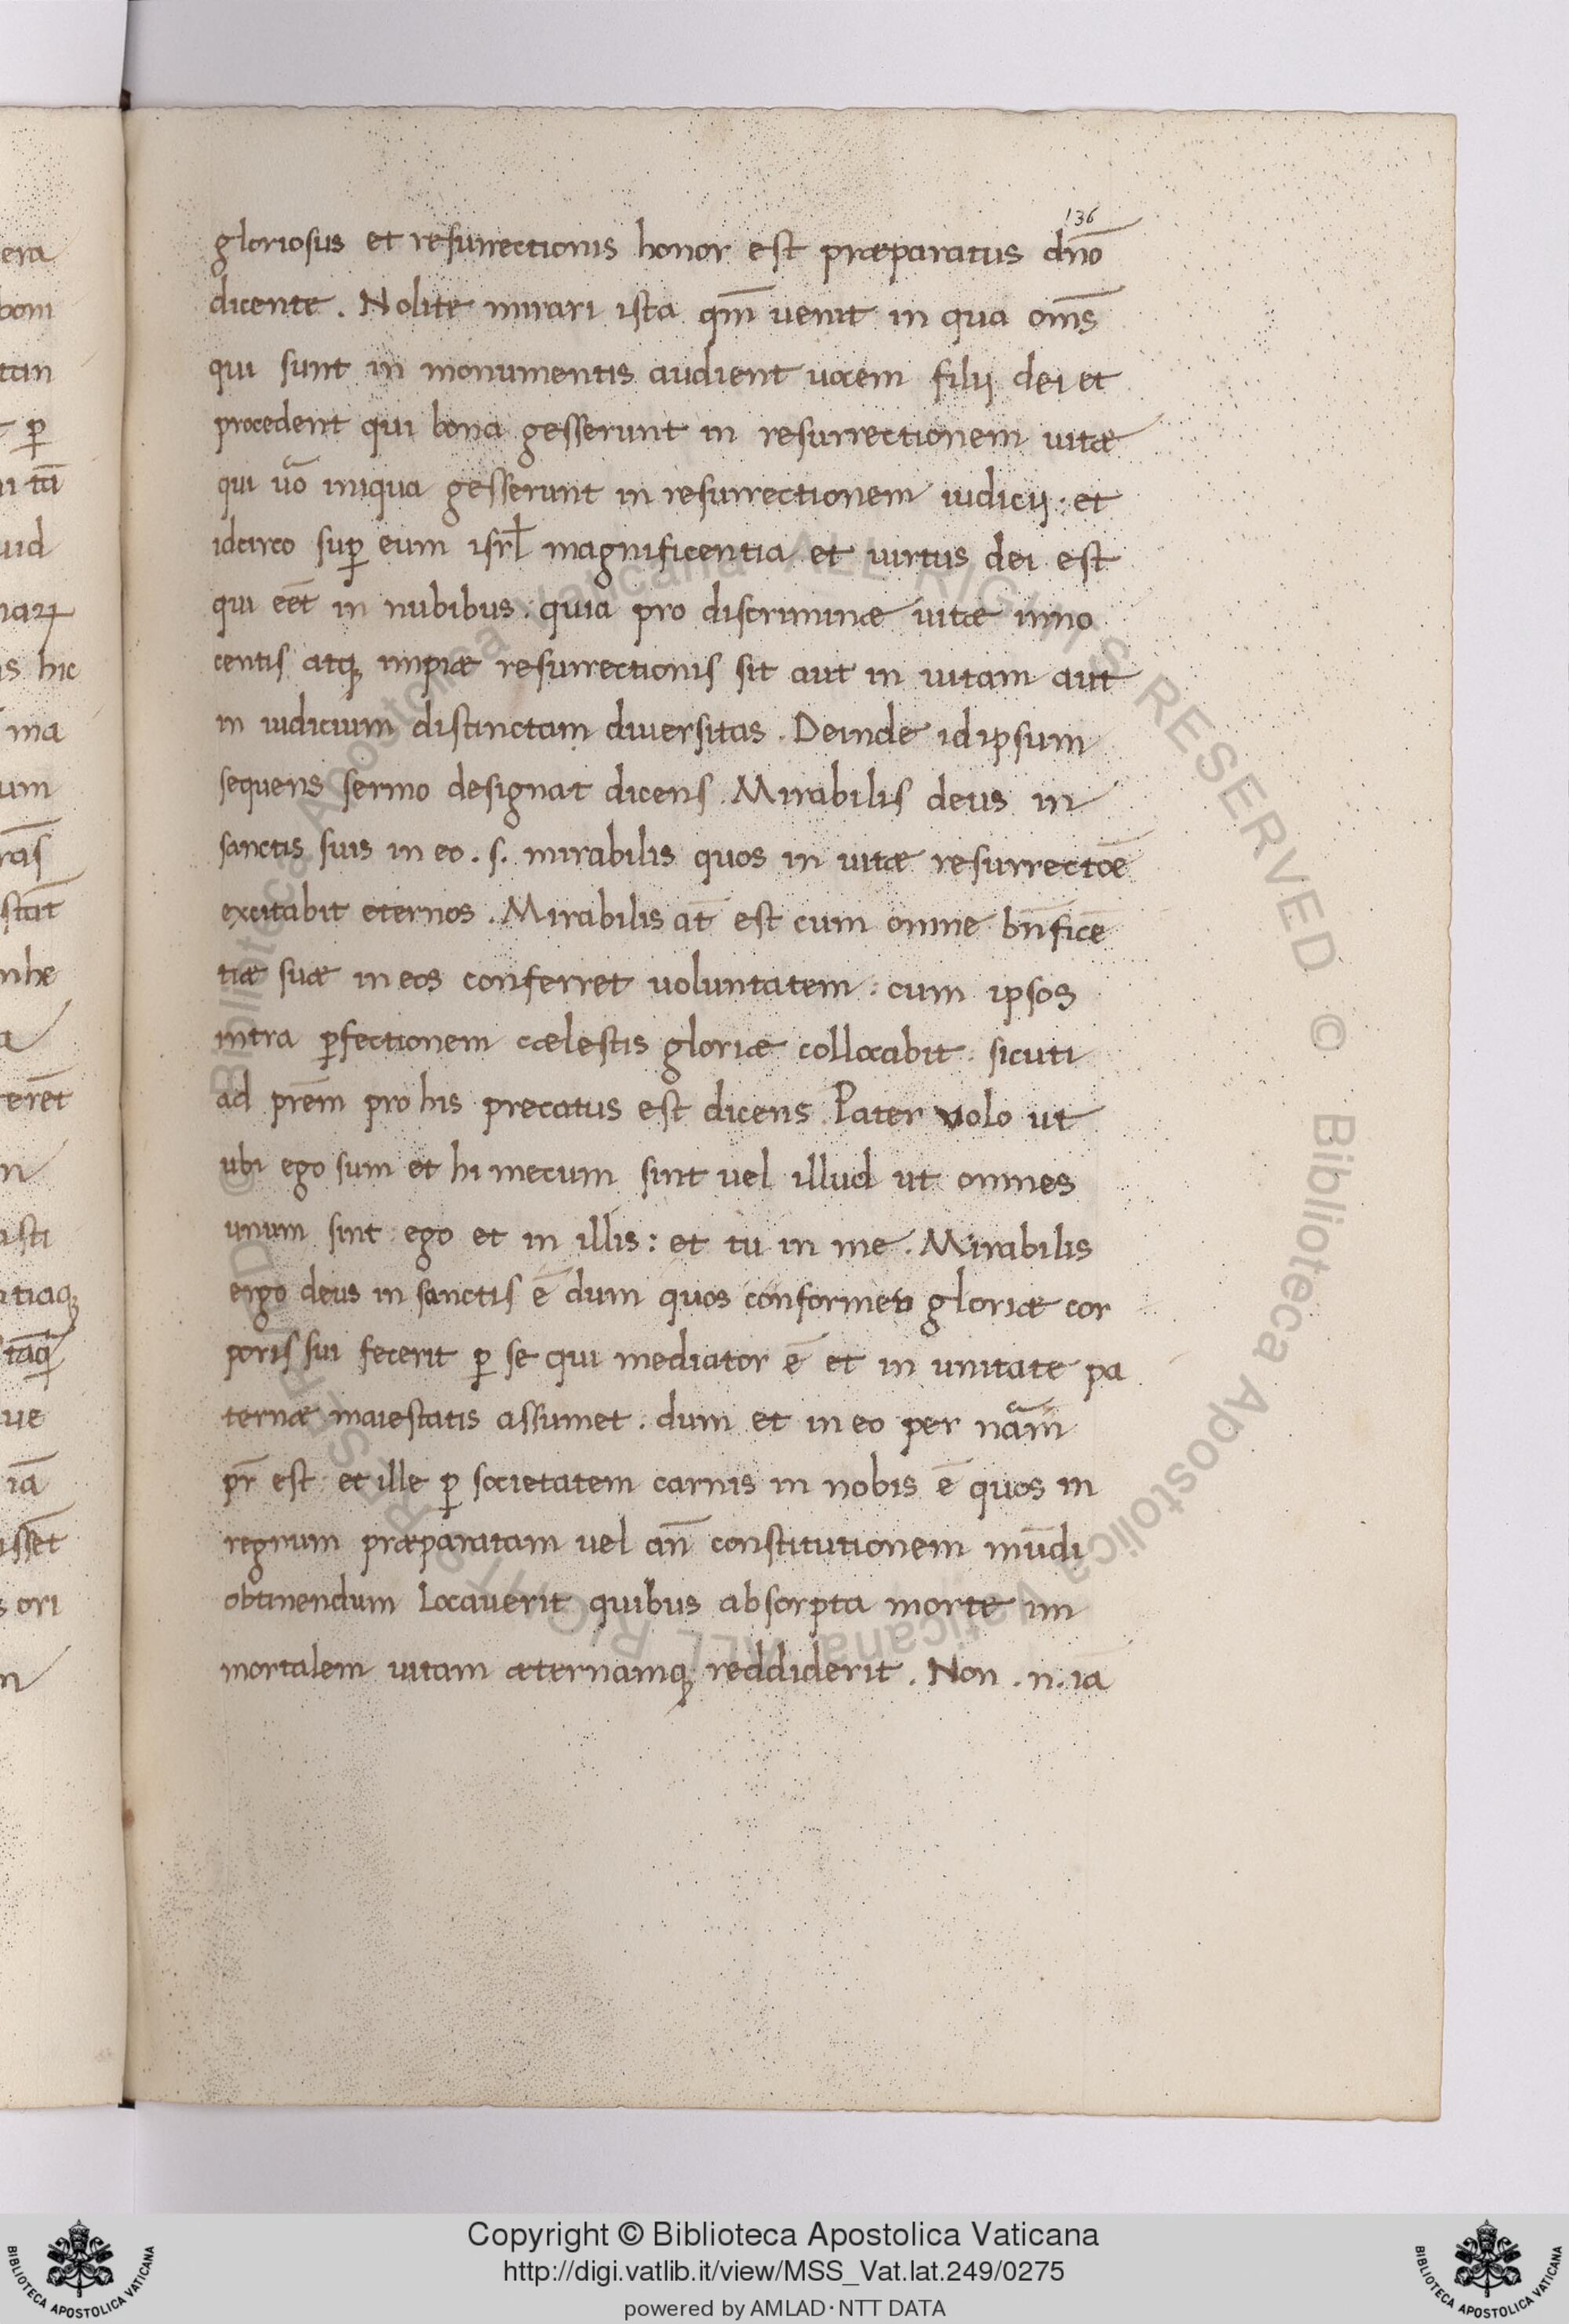 136
gloriosus et resurrectionis honor est præparatus dn̄o
dicente . Nolite mirari ista qm̄ uenit in qua om̄s
qui sunt in monumentis audient uocem filij dei et
procedent qui bona gesserunt in resurrectionem uitæ
qui ūo iniqua gesserunt in resurrectionem iudicij : et
idcirco suꝑ eum isrl̄ magnificentia et uirtus dei est
qui eēt in nubibus : quia pro discriminæ uitæ inno
centis atqꝫ impiæ resurrectionis sit aut in uitam aut
in iudicium distinctam diuersitas . Deinde id ipsum
sequens sermo designat dicens . Mirabilis deus in
sanctis suis in eo . s . mirabilis quos in uitæ resurrectōe
excitabit eternos . Mirabilis at̄ est cum omne bn̄ficē
tiæ suæ in eos conferret uoluntatem : cum ipsos
intra ꝑfectionem cælestis gloriæ collocabit : sicuti
ad prēm pro his precatus est dicens . Pater volo ut
ubi ego sum et hi mecum sint uel illud ut omnes
unum sint : ego et in illis : et tu in me . Mirabilis
ergo deus in sanctis ē dum quos gloriæ cor
poris sui fecerit ꝑ se qui mediator ē et in unitate pa
ternæ maiestatis assumet . dum et in eo per nām
pr̄ est : et ille ꝑ societatem carnis in nobis ē quos in
regnum præparatam uel an̄ constitutionem mūdi
obtinendum locauerit quibus absorpta morte im
mortalem uitam æternamqꝫ reddiderit . Non . n . iā
Copyright © Biblioteca Apostolica Vaticana
http://digi.vatlib.it/view/MSS_Vat.lat.249/0275
powered by AMLAD · NTT DATA
BIBLIOTECA APOSTOLICA VATICANA
BIBLIOTECA APOSTOLICA VATICANA